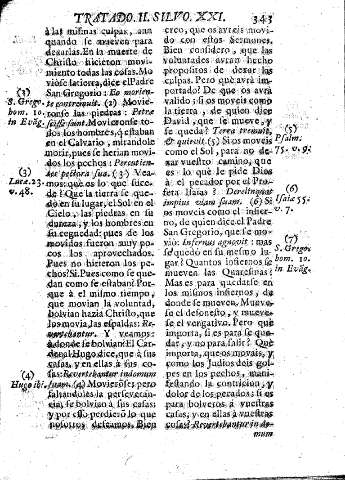 TRATADO. II. SILVO. XXI. 343
à las mismas culpas, aun
quando se mueven para
dexarlas. En la muerte de
Christo hicieron movi-
miento todas las cosas. Mo-
viose la tierra, dice el Padre
San Gregorio: Eo morien-
te contremuit. (2) Movie-
ronse las piedras: Petræ
scissæ sunt. Movieronse to-
dos los hombres, q̃ estaban
en el Calvario, mirandole
morir, pues se herian movi-
dos los pechos: Percutien-
tes pectora sua. (3) Vea-
mos: què es lo que suce-
de? Que la tierra se que-
dò en su lugar, el Sol en el
Cielo, las piedras en su
dureza, y los hombres en
su ceguedad: pues de los
movidos fueron muy po-
cos los aprovechados.
Pues no hirieron los pe-
chos? Si. Pues como se que-
dan como se estaban? Por-
que à el mismo tiempo,
que movian la voluntad,
bolvian hazia Christo, que
los movia, las espaldas: Re-
vertebantur. Y veamos:
adonde se bolvian? El Car-
denal Hugo dice, que à sus
casas, y en ellas à sus co-
sas: Revertebantur in domum
suam. (4) Movieronse; pero
faltandoles la perseveran-
cia, se bolvian à sus casas;
y por esso perdieron lo que
nosotros deseamos. Bien
(3)
S. Grego.
hom. 10.
in Evãg.
(3)
Luca. 23.
v. 48.
(4)
Hugo ibi.
creo, que os avreis movi-
do con estos Sermones.
Bien considero, que las
voluntades avràn hecho
propositos de dexar las
culpas. Pero què avrà im-
portado? De que os avrà
valido; si os moveis como
la tierra, de quien dice
David, que se mueve, y
se queda? Terra tremuit,
& quievit. (5) Si os moveis
como el Sol, para no de-
xar vuestro camino, que
es lo que le pide Dios
à el pecador por el Pro-
feta Isaias? Derelinquat
impius viam suam. (6) Si
os moveis como el infier-
no, de quien dice el Padre
San Gregorio, que se mo-
viò: Infernus agnovit: mas
se quedò en su mismo lu-
gar? Quantos infiernos se
mueven las Quaresmas?
Mas es para quedarse en
los mismos infiernos, de
donde se mueven. Mueve-
se el desonesto, y mueve-
se el vengativo. Pero què
importa, si es para se que-
dar, y no para salir? Què
importa, que os movais, y
como los Judios deis gol-
pes en los pechos, mani-
festando la contricion, y
dolor de los pecados; si es
para bolveros à vuestras
casas, y en ellas à vuestras
cosas: Revertebantur in do-
mum
(5)
Psalm.
75. v. 9.
(6)
Isaiæ 55.
v. 7.
(7)
S. Grego.
hom. 10.
in Evãg.